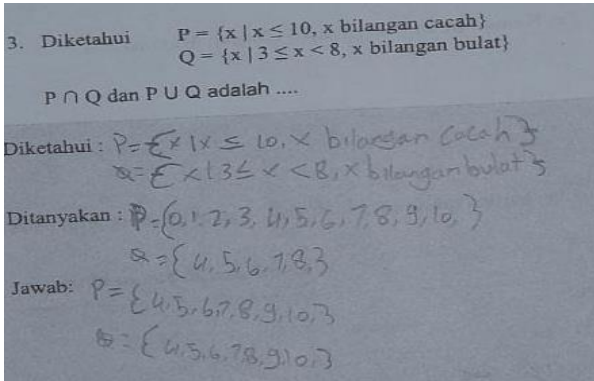 3. Diketahui P = {x | x ≤ 10, x bilangan cacah}
Q = {x | 3 ≤ x < 8, x bilangan bulat}
P ∩ Q dan P U Q adalah ....
Diketahui : P = {x | x ≤ 10, x bilangan cacah}
Q = {x | 3 ≤ x < 8, x bilangan bulat}
Ditanyakan : P = {0, 1, 2, 3, 4, 5, 6, 7, 8, 9, 10, }
Q = {4, 5, 6, 7, 8, }
Jawab: P = {4, 5, 6, 7, 8, 9, 10, }
Q = {4, 5, 6, 7 8, 9, 10, }